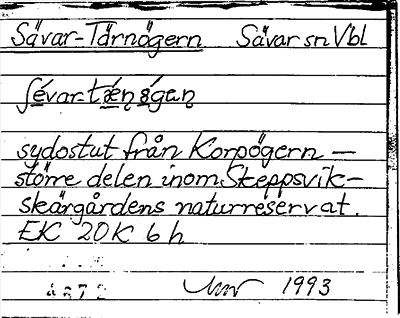 Sävar-Tärnögern Sävar sn Vbl
sydostut från Korpögern —
större delen inom Skeppsvik-
skärgårdens naturreservat.
EK 20K 6h
1993